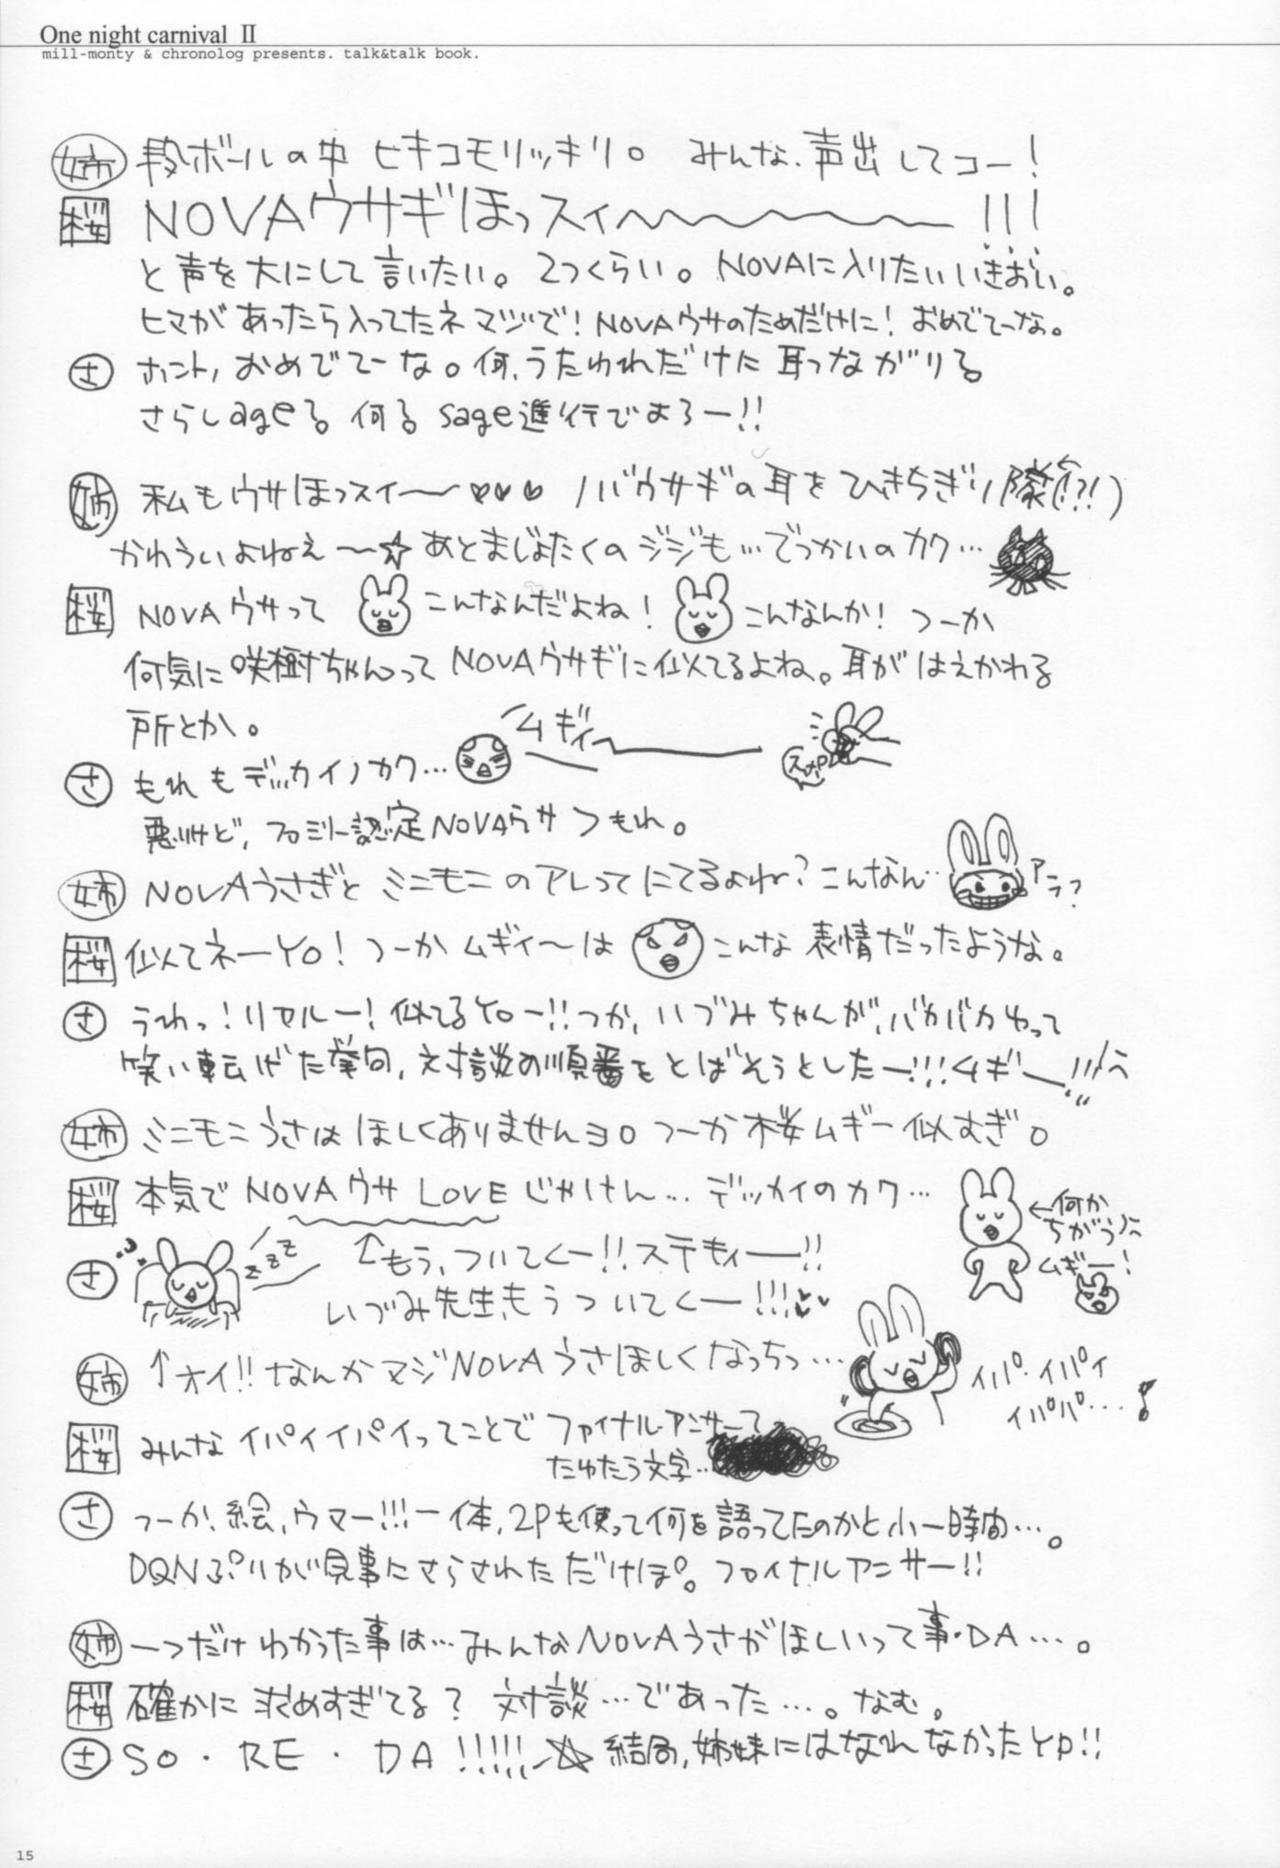 One night carnival II
mill-monty & chronolog presents. talk&talk book.
姉 段ボールの中 ヒキコモリッキリ。 みんな、声出してコー!
桜 NOVAウサギほっスィ〜〜〜〜〜〜 !!!
と声を大にして言いたい。2つくらい。NOVAに入りたいいきおい。
ヒマがあったら入ってたネ マジで! NOVAウサのためだけに! おめでてーな。
さ ホント、おめでてーな。何、うたわれだけに耳つながり。
さらしageる。何る sage進行でよろー!!
姉 私もウサほっスィー〜♥♥♥ ノバウサギの耳をひきちぎり隊(!?!)
かわういよねぇ〜☆ あとまじょたくのジジも…でっかいのカク…
桜 NOVAウサって こんなんだよね! こんなんか! つーか
何気に咲樹ちゃんってNOVAウサギに似てるよね。耳がはえかわる
所とか。
ムギィ〜
スポ
さ もれもデッカイノカク…
悪いけど、フロミリー認定NOVAウサつもれ。
姉 NOVAうさぎと ミニモニのアレってにてるよね? こんなん…
アラ?
桜 似てネーYO! つーか ムギィ〜は こんな 表情だったような。
さ うわっ! リアルー! 似てるYoー!! つか、いづみちゃんが、バカバカゆって
笑い転げた挙句、対談の順番をとばそうとしたー!!! ムギー!!!
姉 ミニモニうさはほしくありませんヨ。つーか桜ムギー似すぎ。
桜 本気でNOVAウサ LOVE じゃけん… デッカイのカク…
←何かちがう
ムギー!
さ zzz ↑もう、ついてくー!! ステキィー!!
いづみ先生、もうついてくー!!!♥♥
姉 ↑オイ!! なんかマジNOVAうさほしくなっちっ…
イパ・イパイ
イパパ…♪
桜 みんなイパイイパイってことで ファイナルアンサーて
たゆたう文字…
さ つーか、絵、ウマー!!! 一体、2Pも使って何を語ってたのかと小一時間…。
DQNぷりが見事にさらされただけぽ。ファイナルアンサー!!
姉 一つだけわかった事は…みんなNOVAうさがほしいって事・DA…。
桜 確かに求めすぎてる? 対談…であった…。なむ。
さ SO・RE・DA!!!!!☆ 結局、姉妹にはなれなかったYO!!
15